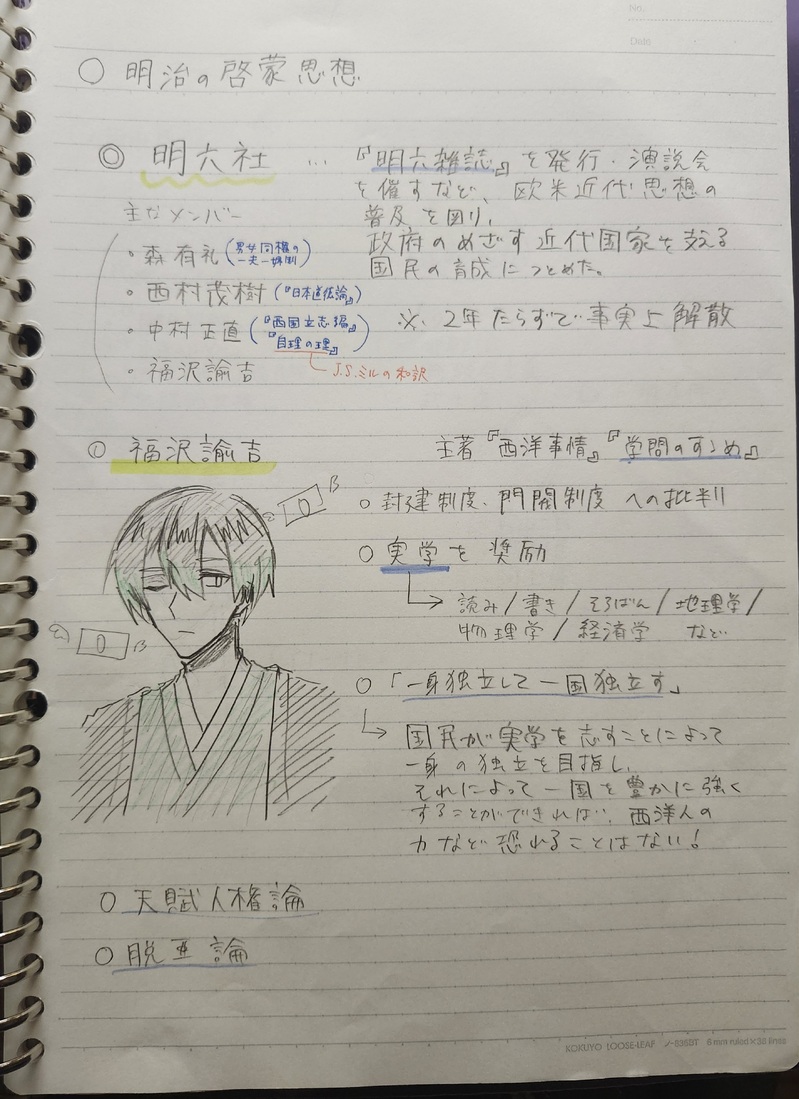 No.
Date
○ 明治の啓蒙思想
◎ 明六社 … 『明六雑誌』を発行・演説会
を催すなど、欧米近代思想の
普及を図り、
政府のめざす近代国家を支える
国民の育成につとめた。
※ 2年たらずで事実上解散
主なメンバー
・森有礼(男女同権の
一夫一婦制)
・西村茂樹(『日本道徳論』)
・中村正直(『西国立志編』
『自理の理』)
J.S.ミルの和訳
・福沢諭吉
① 福沢諭吉
主著『西洋事情』『学問のすゝめ』
○ 封建制度、門閥制度への批判
○ 実学を奨励
→ 読み/書き/そろばん/地理学/
物理学/経済学 など
○ 「一身独立して一国独立す」
→ 国民が実学を志すことによって
一身の独立を目指し、
それによって一国を豊かに強く
することができれば、西洋人の
力など恐れることはない!
○ 天賦人権論
○ 脱亜論
KOKUYO LOOSE-LEAF ノ-836BT 6 mm ruled×36 lines